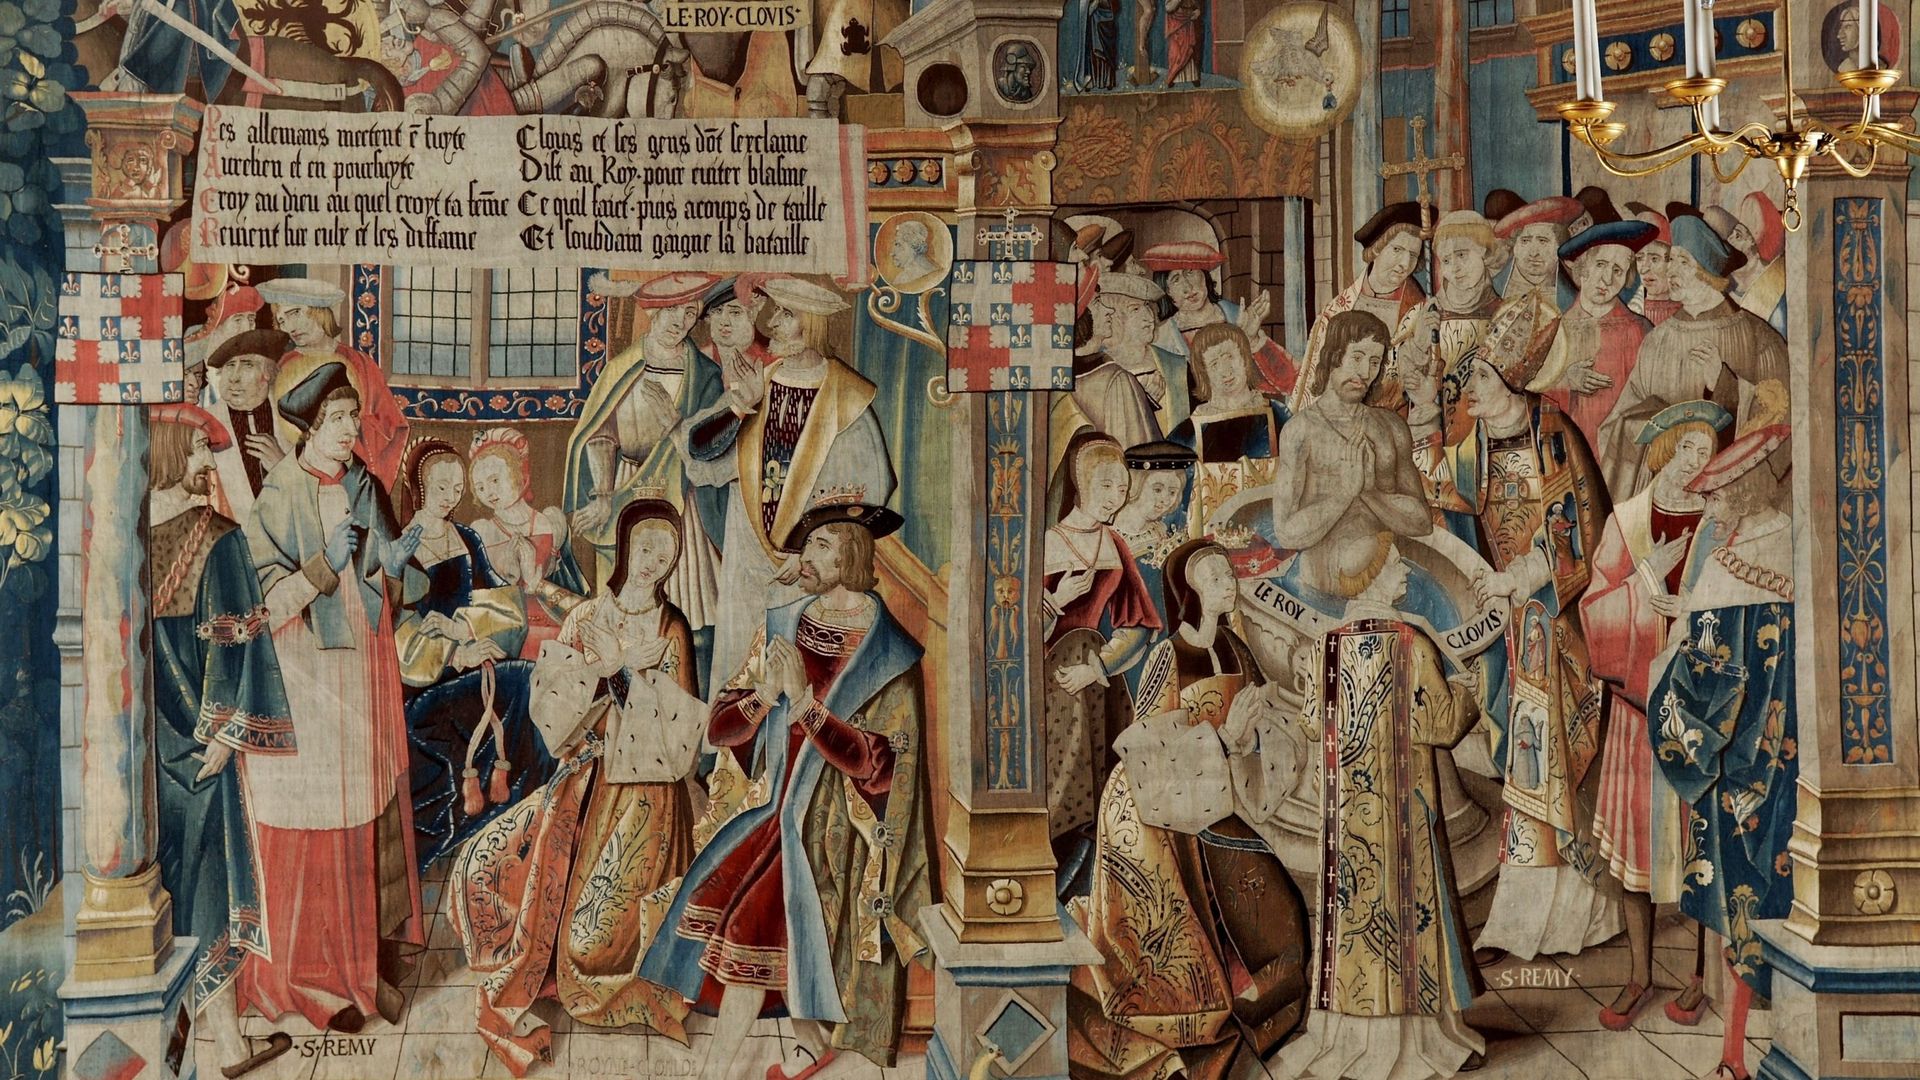 LE·ROY·CLOVIS·
Les allemans mectent ē fuyte
Aurelien et en poursuyte
Croy au dieu au quel croyt ta fēme
Reuient sur eulx et les diffame
Clouis et ses gens dōt sexclame
Dist au Roy·pour euiter blasme
Ce quil faict·puis acoups de taille
Et soubdain gaigne la bataille
LE ROY·
CLOVIS·
·S·REMY
ROYNE
·S·REMY·